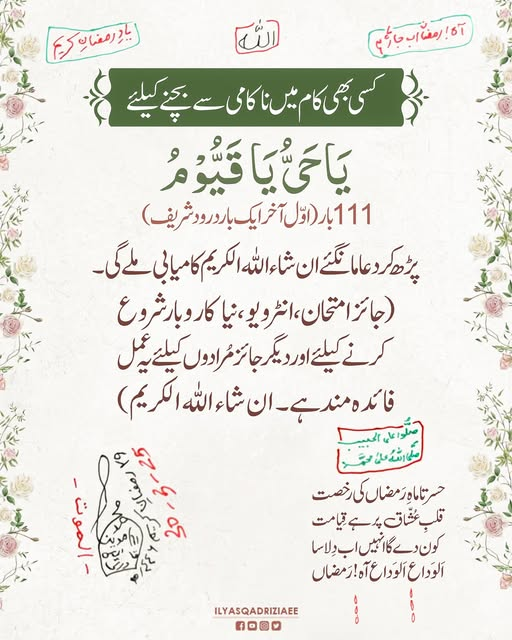 یادِ رمضانِ کریم
اللہ
آہ! رمضاں اب جا رہا ہے
کسی بھی کام میں ناکامی سے بچنے کیلئے
یَا حَیُّ یَا قَیُّوْمُ
111 بار (اوّل آخر ایک بار درود شریف)
پڑھ کر دعا مانگئے ان شاء اللہ الکریم کامیابی ملے گی۔
(جائز امتحان، انٹرویو، نیا کاروبار شروع
کرنے کیلئے اور دیگر جائز مُرادوں کیلئے یہ عمل
فائدہ مند ہے۔ ان شاء اللہ الکریم)
صلّوا علی الحبیب
صلّی اللہ علیٰ محمّد
حسرتا ماہِ رَمضاں کی رخصت
قلبِ عُشّاق پر ہے قِیامت
کون دے گا انہیں اب دِلاسا
اَلوَداع اَلوَداع آہ! رَمضاں
ILYASQADRIZIAEE